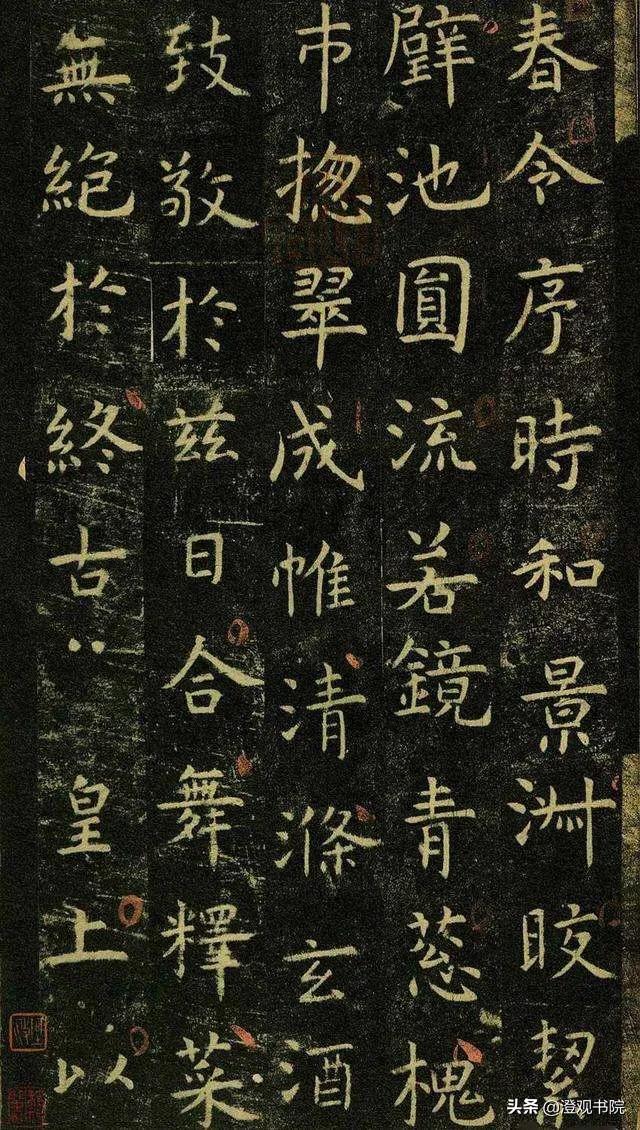 春令序時和景淑晈絜
璧池圎流若鏡青葱槐
市揔翠成帷清滌玄酒
致敬於兹日合舞釋菜
無絕於終古皇上以
头条 @澄观书院